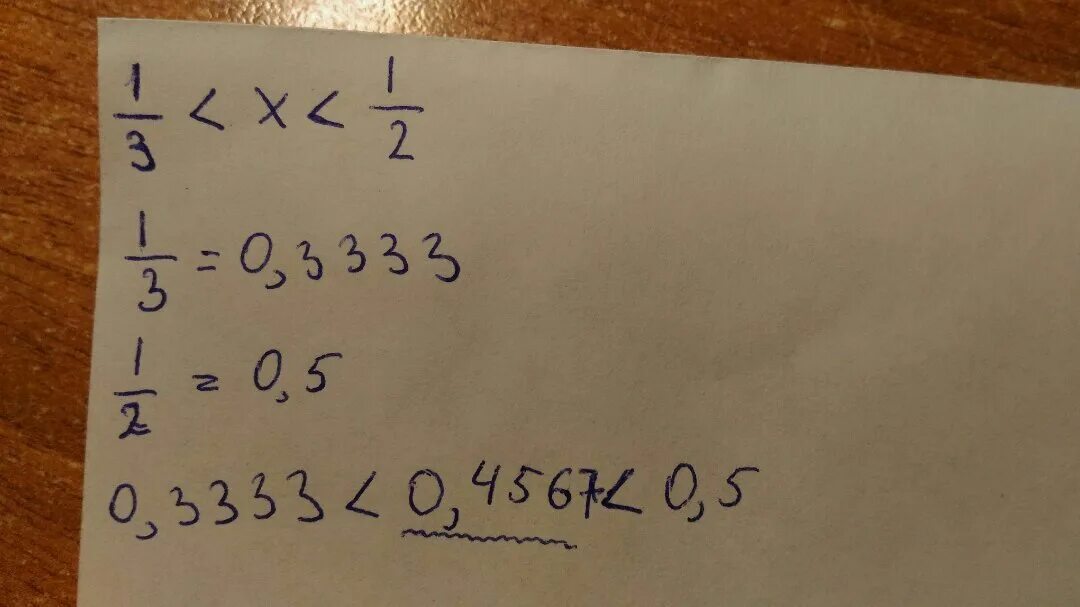 1/3 < x < 1/2
1/3 = 0,3333
1/2 = 0,5
0,3333 < 0,4567 < 0,5